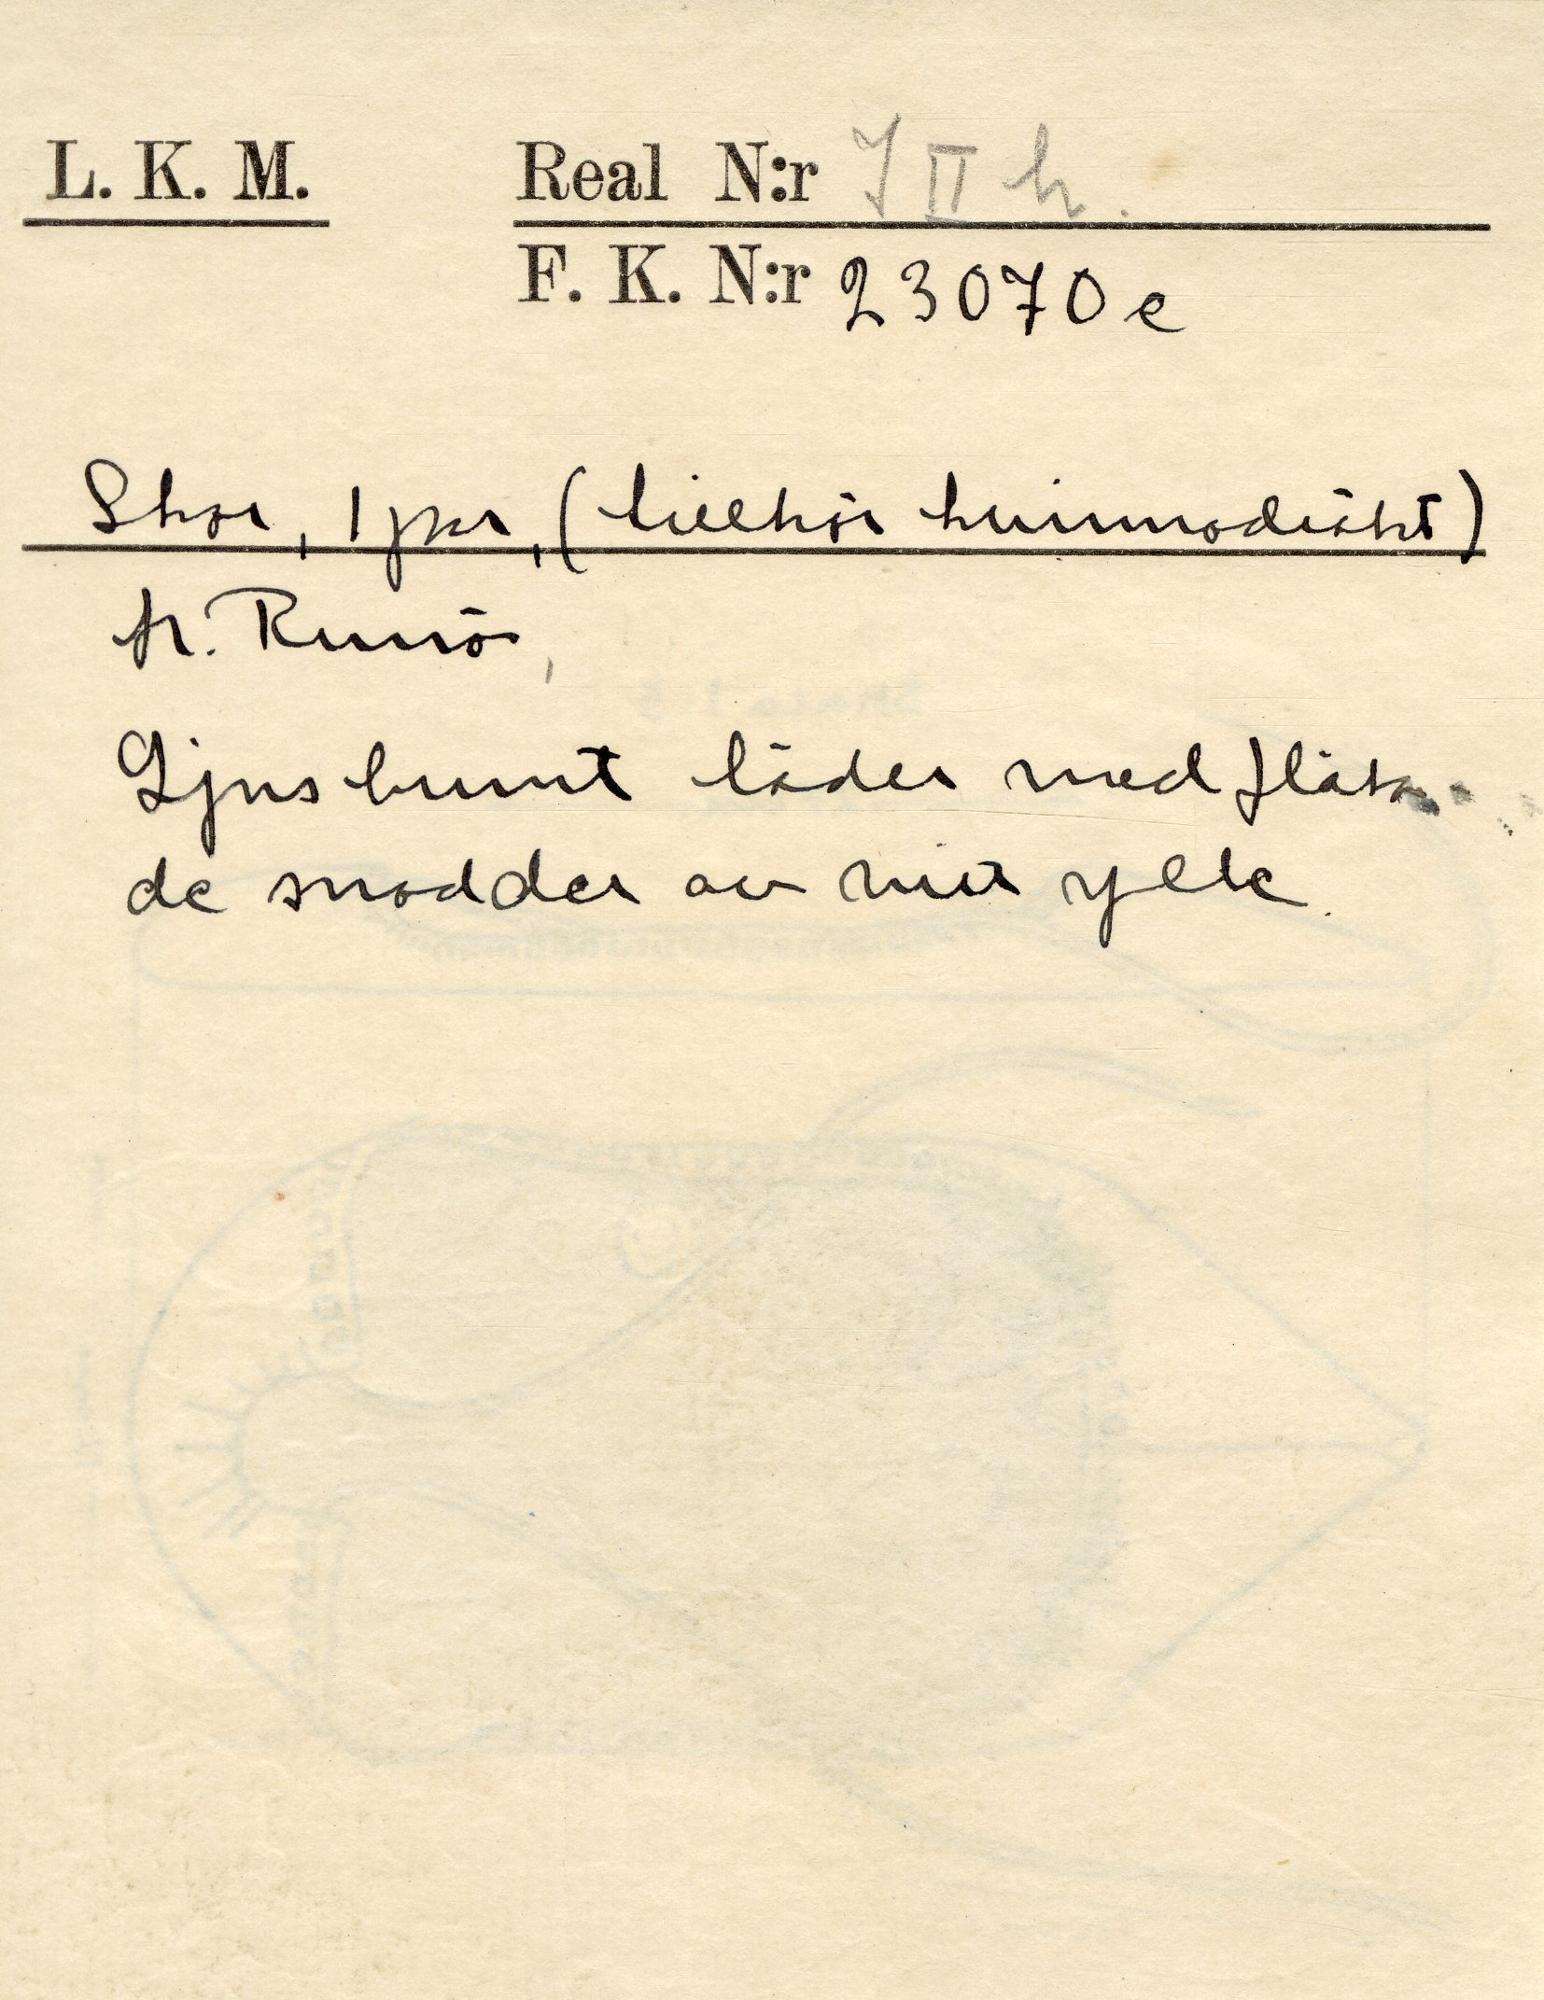 L. K. M. Real N:r J II h.
F. K. N:r 23070 e
Skor, 1 par, (tillhör kvinnodräkt)
fr. Runö,
Ljusbrunt läder med fläta-
de snodder av vitt ylle.